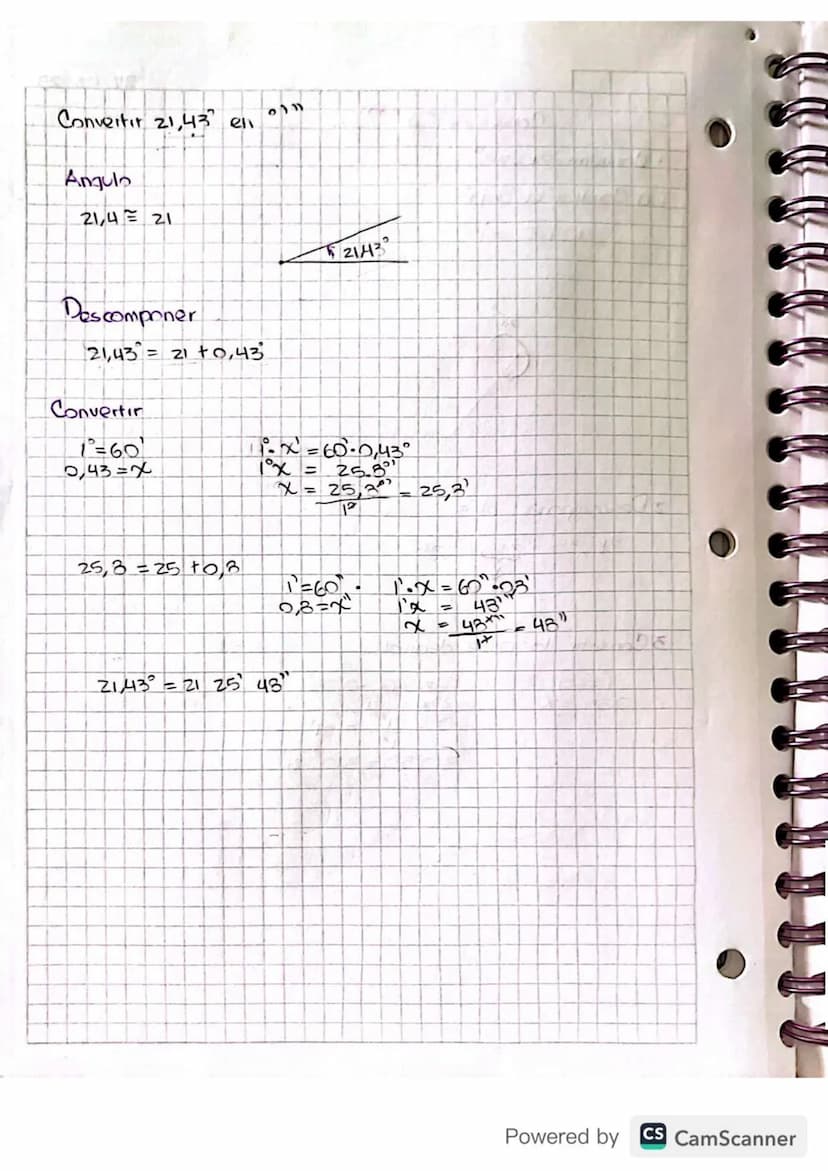 Convertir 21,43° en °'"
Angulo
21,4 ≅ 21
21,43°
Descomponer
21,43° = 21 + 0,43°
Convertir
1° = 60'
0,43 = x
1°·x' = 60'·0,43°
1°x = 25.8°'
x = 25,8°' = 25,8'
1°
25,8 = 25 + 0,8
1' = 60"
0,8 = x"
1'·x = 60"·0,8'
1'x = 48'"
x = 48'" = 48"
21,43° = 21 25' 48"
Powered by CS CamScanner